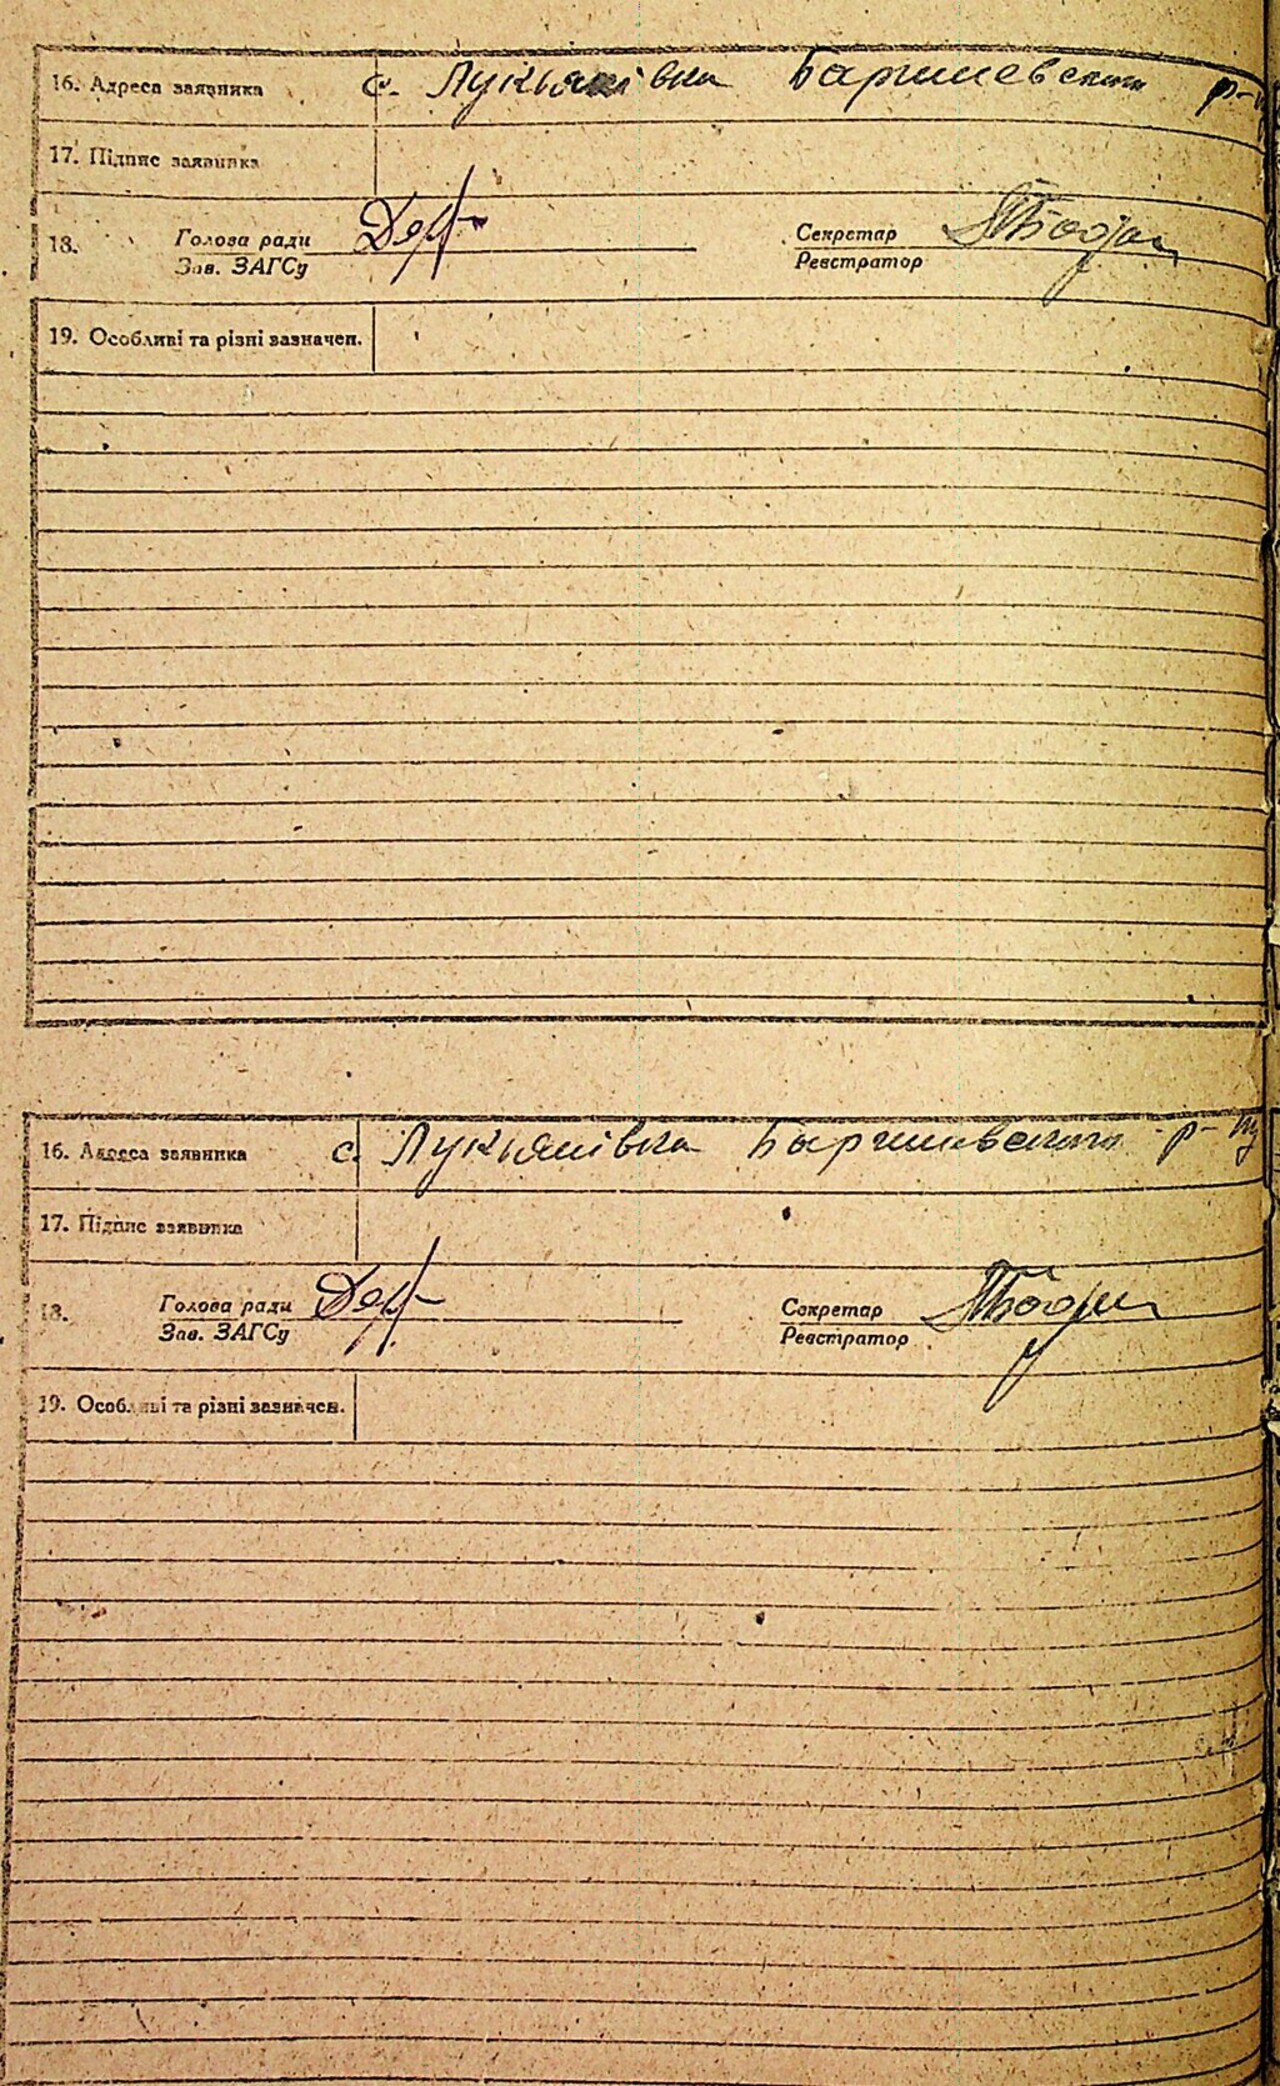 16. Адреса заявника с. Лукьянівка Баришевского р-
17. Підпис заявника
18. Голова ради Секретар
Зав. ЗАГСу Реєстратор
19. Особливі та різні зазначен.
16. Адреса заявника с. Лукьянівка Баришевского р-ну
17. Підпис заявника
18. Голова ради Секретар
Зав. ЗАГСу Реєстратор
19. Особливі та різні зазначен.